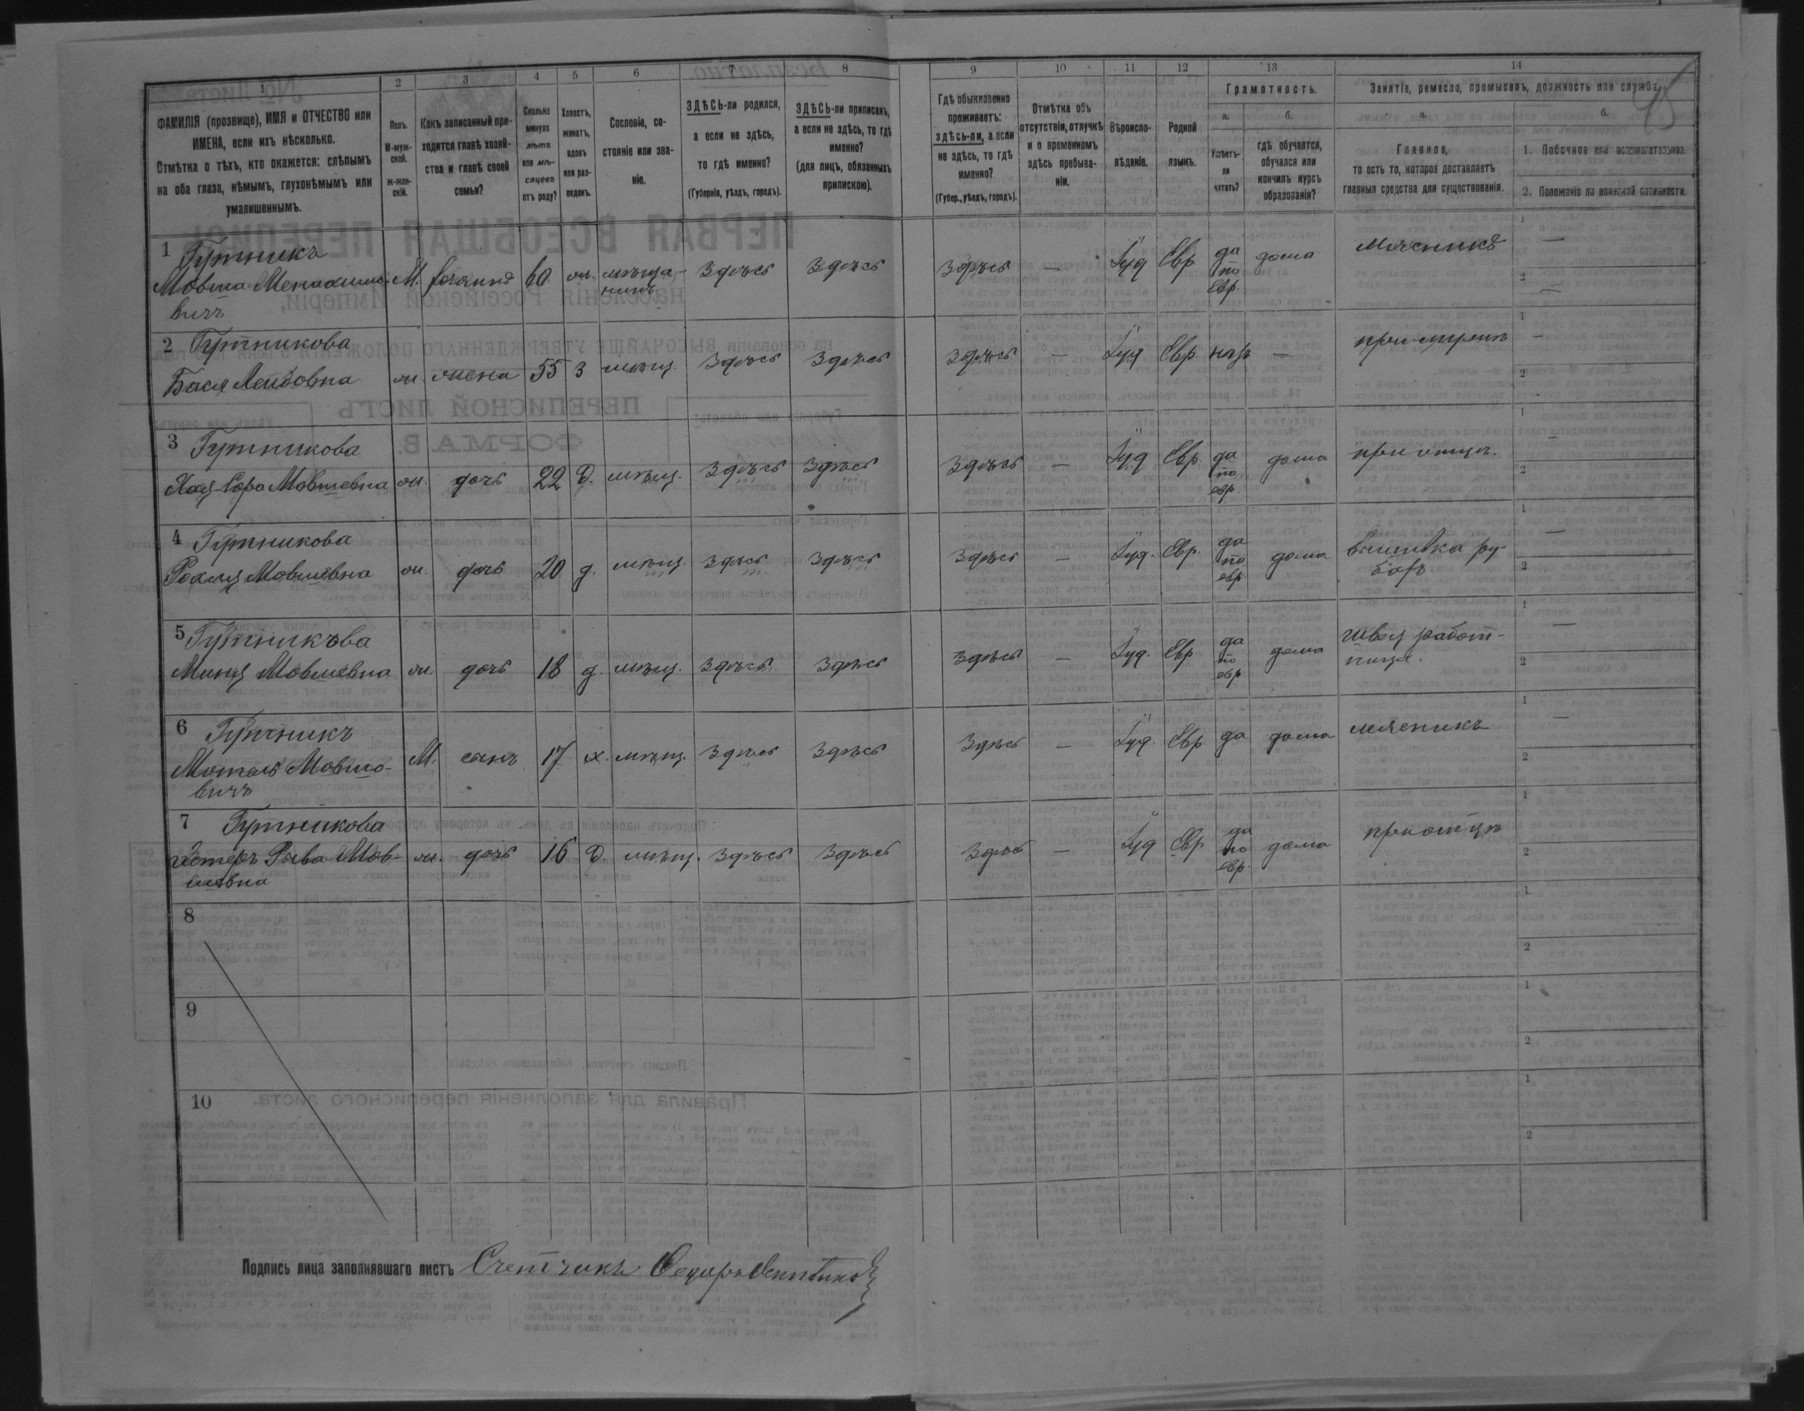 1
2
3
4
5
6
7
8
9
10
11
12
13
14
ФАМИЛІЯ (прозвище), ИМЯ и ОТЧЕСТВО или
ИМЕНА, если ихъ нѣсколько.
Отмѣтка о тѣхъ, кто окажется: слѣпымъ
на оба глаза, нѣмымъ, глухонѣмымъ или
умалишеннымъ.
Полъ.
М-муж-
ской.
Ж-жен-
скій.
Какъ записанный при-
ходится главѣ хозяй-
ства и главѣ своей
семьи?
Сколько
минуло
лѣтъ
или мѣ-
сяцевъ
отъ роду?
Холостъ,
женатъ,
вдовъ
или раз-
веденъ.
Сословіе, со-
стояніе или зва-
ніе.
ЗДѢСЬ-ли родился,
а если не здѣсь,
то гдѣ именно?
(Губернія, уѣздъ, городъ).
ЗДѢСЬ-ли приписанъ,
а если не здѣсь, то гдѣ
именно?
(для лицъ, обязанныхъ
припискою).
Гдѣ обыкновенно
проживаетъ:
здѣсь-ли, а если
не здѣсь, то гдѣ
именно?
(Губер., уѣздъ, городъ).
Отмѣтка объ
отсутствіи, отлучкѣ
и о временномъ
здѣсь пребыва-
ніи.
Вѣроиспо-
вѣданіе.
Родной
языкъ.
Грамотность.
а.
Умѣетъ-
ли
читать?
б.
гдѣ обучается,
обучался или
кончилъ курсъ
образованія?
Занятіе, ремесло, промыселъ, должность или служба.
а.
Главное,
то есть то, которое доставляетъ
главныя средства для существованія.
б.
1. Побочное или вспомогательное.
2. Положеніе по воинской повинности.
1 Гутникъ
Мовша Менахимо-
вичъ
М. хозяинъ 60 ж. мѣща-
нинъ
Здѣсь Здѣсь Здѣсь — Іуд Евр да
по
Евр.
дома мясникъ
2 Гутникова
Бася Лейбовна ж. жена 55 З мѣщ. Здѣсь Здѣсь Здѣсь — Іуд Евр. нѣтъ — при мужѣ
3 Гутникова
Хая Сора Мовшевна ж. дочь 22 Д. мѣщ. Здѣсь Здѣсь Здѣсь — Іуд Евр. да
по
евр.
дома при отцѣ.
4 Гутникова
Мовшевна ж. дочь 20 д. мѣщ. Здѣсь Здѣсь Здѣсь — Іуд. Евр. да
по
евр
дома
5 Гутникова
Миня Мовшевна ж. дочь 18 д. мѣщ. Здѣсь Здѣсь Здѣсь — Іуд. Евр да
по
евр
дома швея работ-
ница.
6 Гутникъ
Мотель Мовшо-
вичъ
М. сынъ 17 х. мѣщ. Здѣсь Здѣсь Здѣсь — Іуд. Евр да дома мясникъ
7 Гутникова
Эстеръ Рыва Мов-
шевна
ж. дочь 16 Д. мѣщ. Здѣсь Здѣсь Здѣсь — Іуд Евр да
по
евр
дома при отцѣ
8
9
10
Подпись лица заполнявшаго листъ Счетчикъ